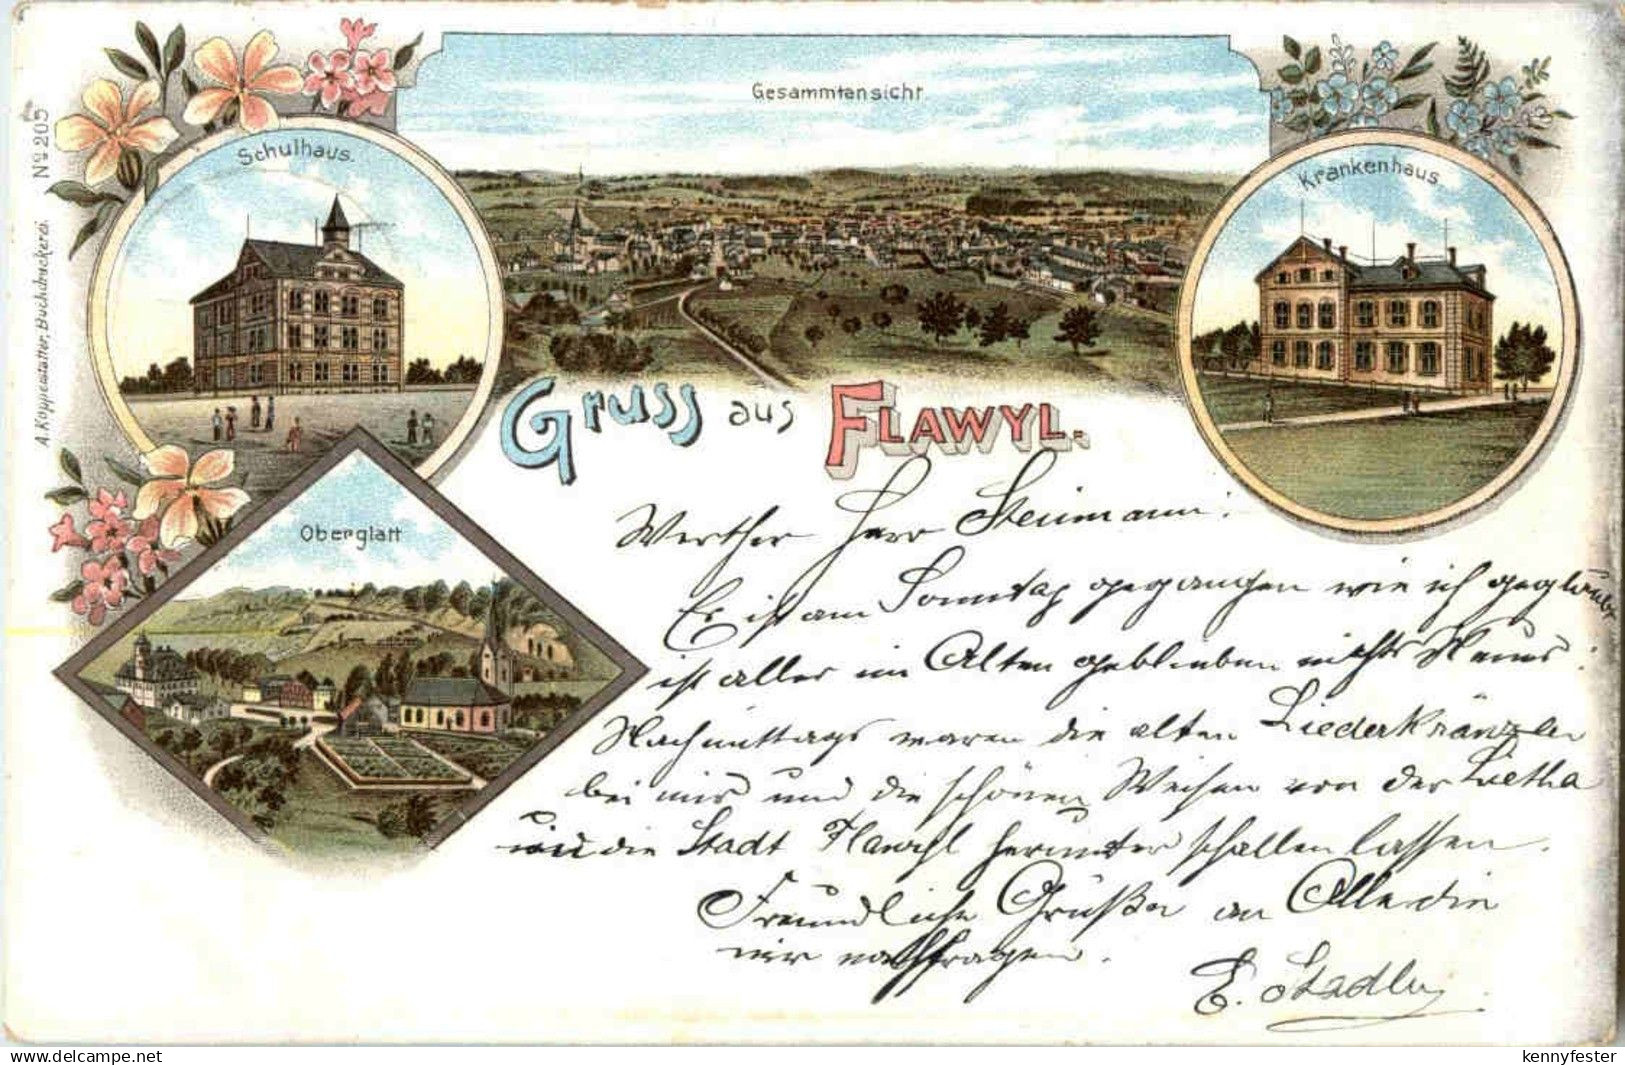 Gesammtansicht.
Schulhaus.
Krankenhaus.
Nº 205
A. Koppenstätter, Buchdruckerei.
Gruss aus FLAWYL.
Oberglatt
Werther Herr Steinmann!
Es ist am Sonntag gegangen wie ich geglaubt
ist alles im Alten geblieben nichts Neues:
Nachmittags waren die alten Liederkränzler
bei mir und die schönen Weisen von der
in die Stadt Flawyl herunter schallen lassen.
Freundliche Grüße an Alle die
mir nachfragen.
E. Stadler
delcampe.net
kennyfester